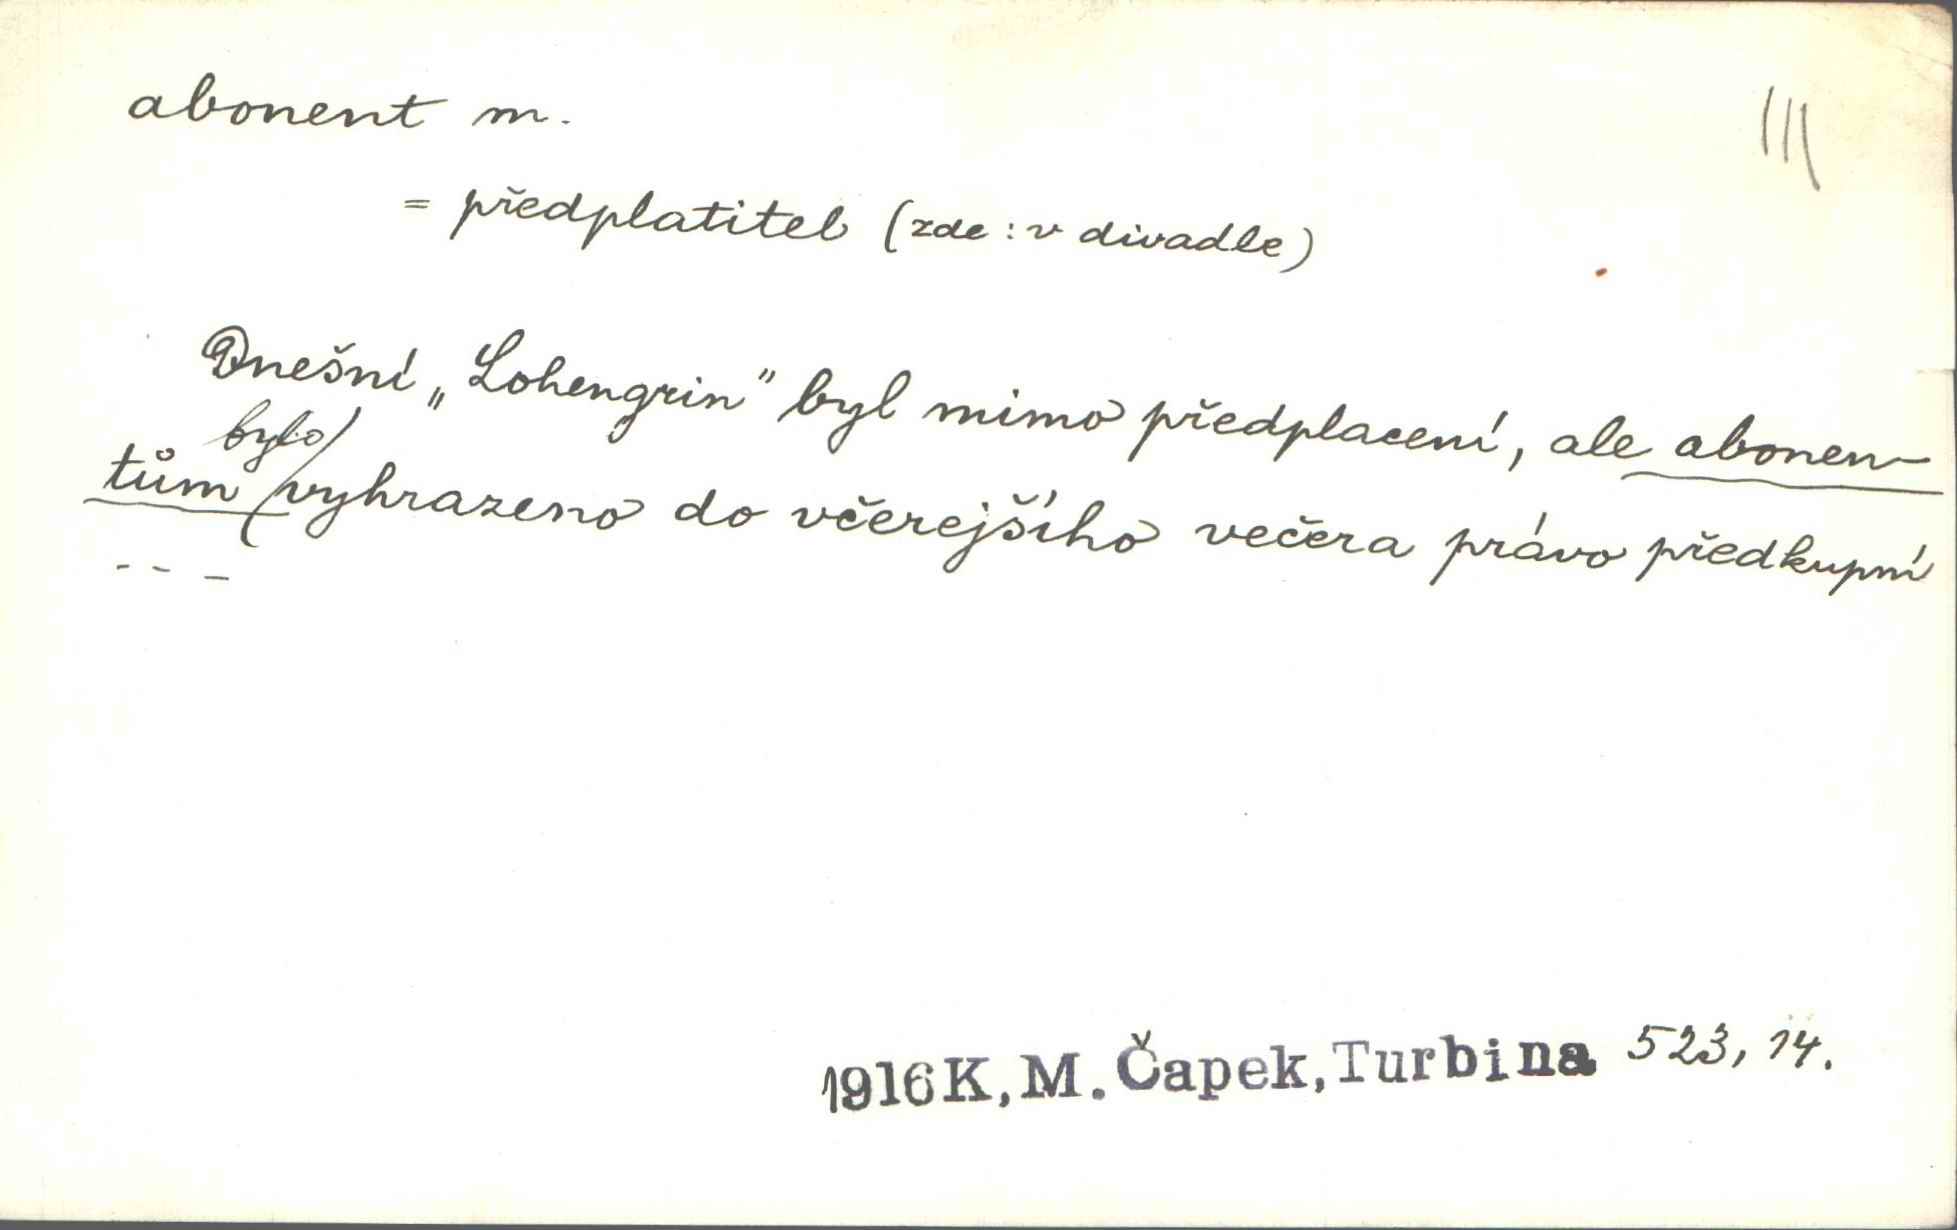 abonent m.
III
= předplatitel (zde: v divadle)
Dnešní „Lohengrin" byl mimo předplacení, ale abonen-
bylo
tům vyhrazeno do včerejšího večera právo předkupní
- - -
1916 K, M. Čapek, Turbina 523, 14.